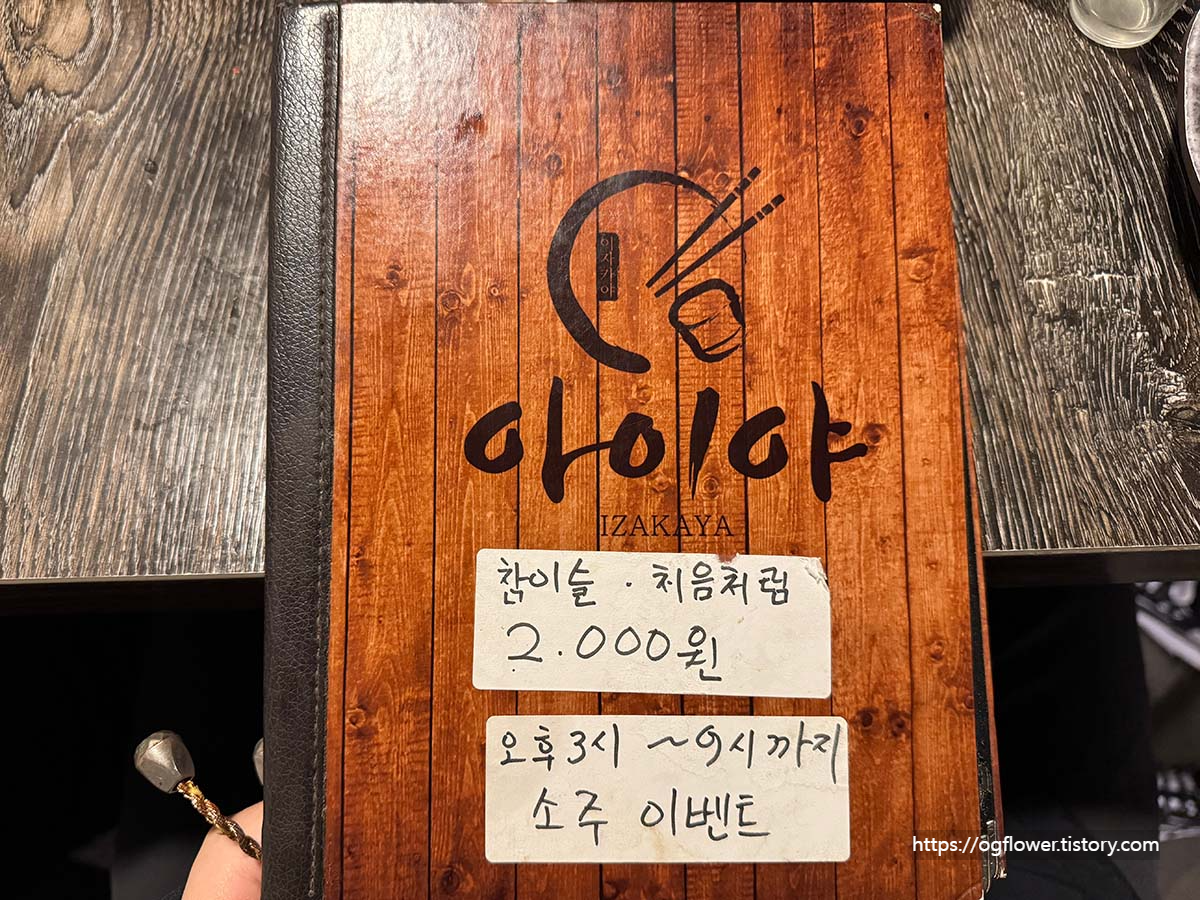 이자카야
아이야
IZAKAYA
참이슬 · 처음처럼
2.000원
오후3시 ~9시까지
소주 이벤트
https://ogflower.tistory.com